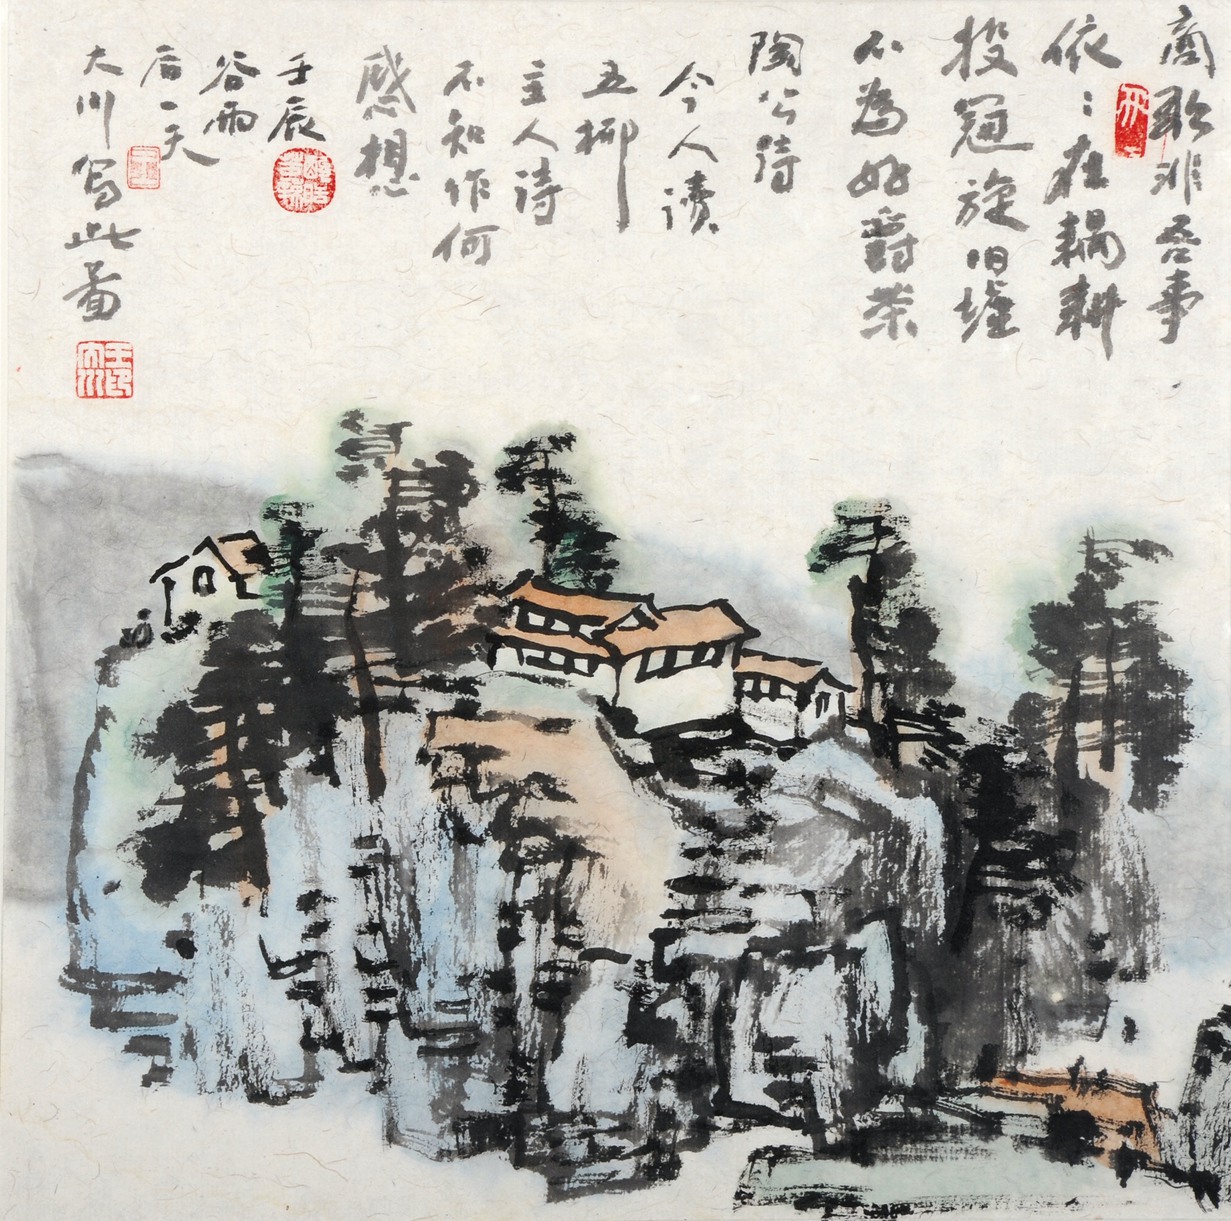 商歌非吾事
依：在耦耕
投冠旋旧墟
不为好爵荣
陶公诗
今人读
五柳
主人诗
不知作何
感想
壬辰
谷雨
后一天
大川写此图